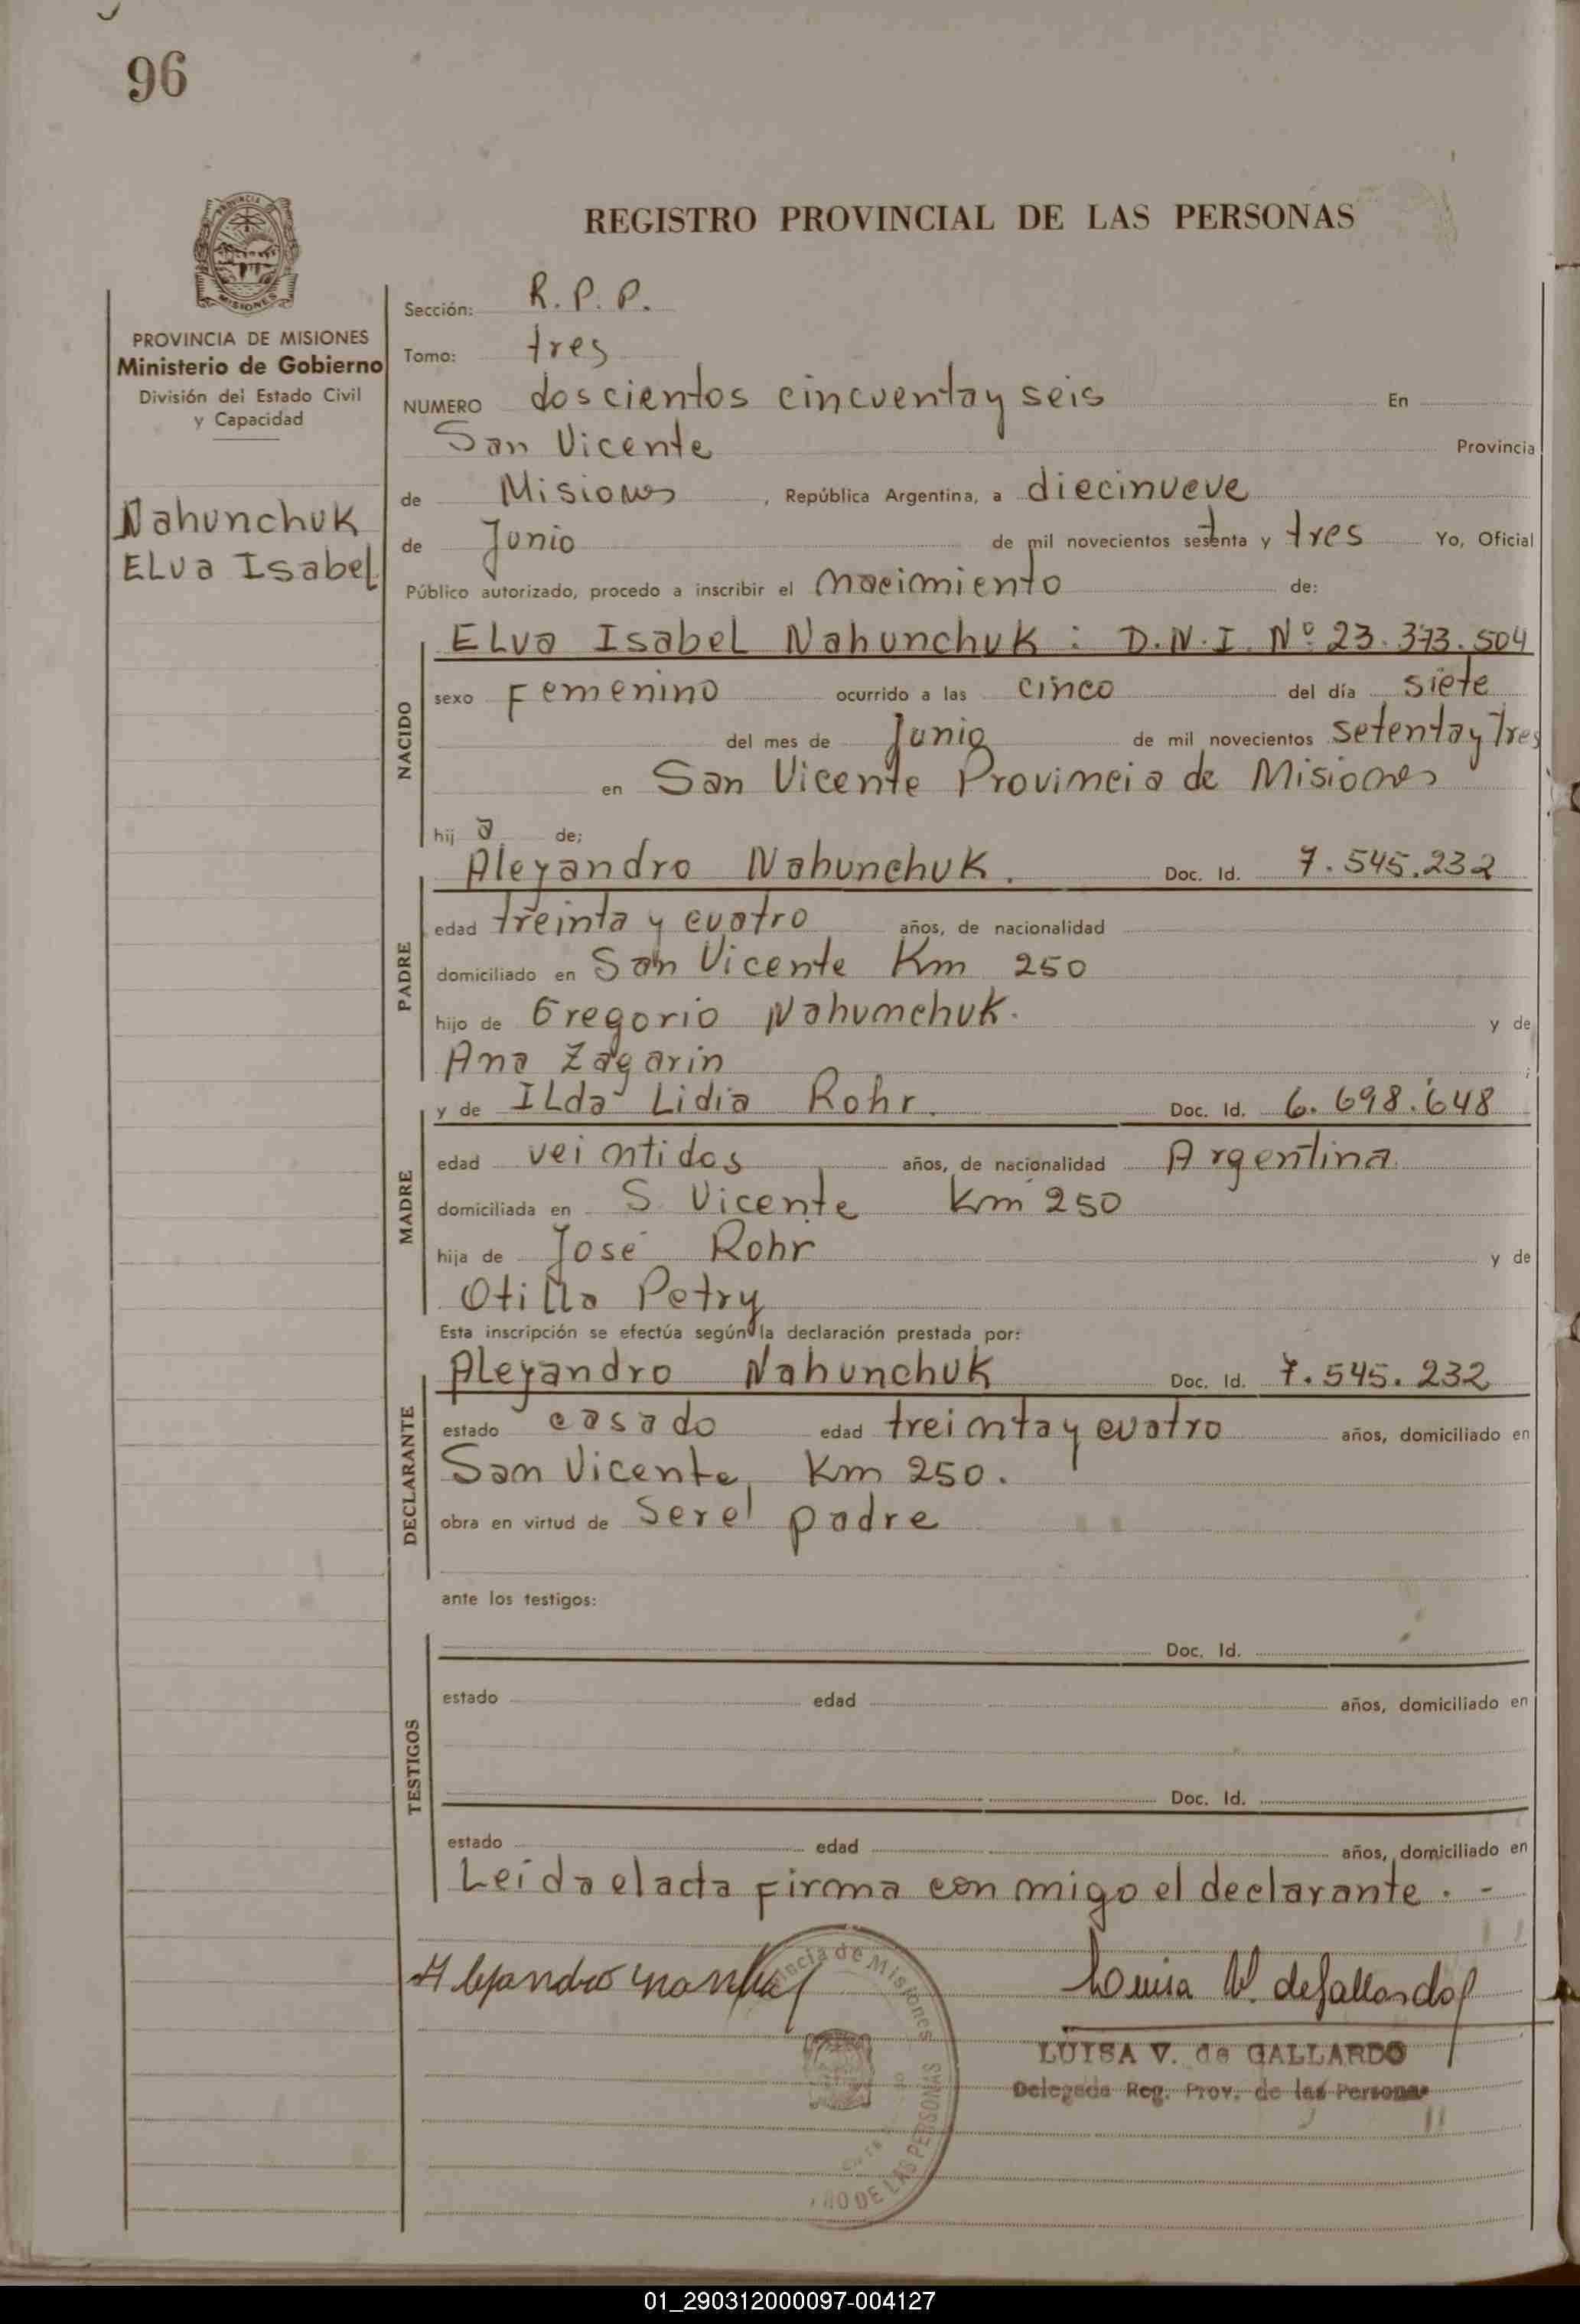 96
REGISTRO PROVINCIAL DE LAS PERSONAS
PROVINCIA DE MISIONES
Ministerio de Gobierno
División del Estado Civil
y Capacidad
Nahunchuk
ELva Isabel
Sección: R. P. P.
Tomo: tres
NUMERO doscientos cincuenta y seis En
San Vicente Provincia
de Misiones, República Argentina, a diecinueve
de Junio de mil novecientos setenta y tres Yo, Oficial
Público autorizado, procedo a inscribir el nacimiento de:
NACIDO
ELva Isabel Nahunchuk : D.N.I. Nº 23.373.504
sexo Femenino ocurrido a las cinco del día siete
del mes de Junio de mil novecientos setenta y Tres
en San Vicente Provincia de Misiones
hij a de;
PADRE
Aleyandro Nahunchuk. Doc. Id. 7.545.232
edad treinta y cuatro años, de nacionalidad
domiciliado en San Vicente Km 250
hijo de Gregorio Nahunchuk. y de
Ana Zagarin ;
MADRE
y de ILda Lidia Rohr. Doc. Id. 6.698.648
edad veintidos años, de nacionalidad Argentina
domiciliada en S. Vicente Km 250
hija de José Rohr y de
Otilla Petry
Esta inscripción se efectúa según la declaración prestada por:
DECLARANTE
Aleyandro Nahunchuk Doc. Id. 7.545.232
estado casado edad treinta y cuatro años, domiciliado en
San Vicente, Km 250.
obra en virtud de Ser el padre
ante los testigos:
TESTIGOS
Doc. Id.
estado edad años, domiciliado en
Doc. Id.
estado edad años, domiciliado en
Leida el acta firma con migo el declarante. -
Luisa V. de Gallardo
LUISA V. de GALLARDO
Delegada Reg. Prov. de las Personas
01_290312000097-004127